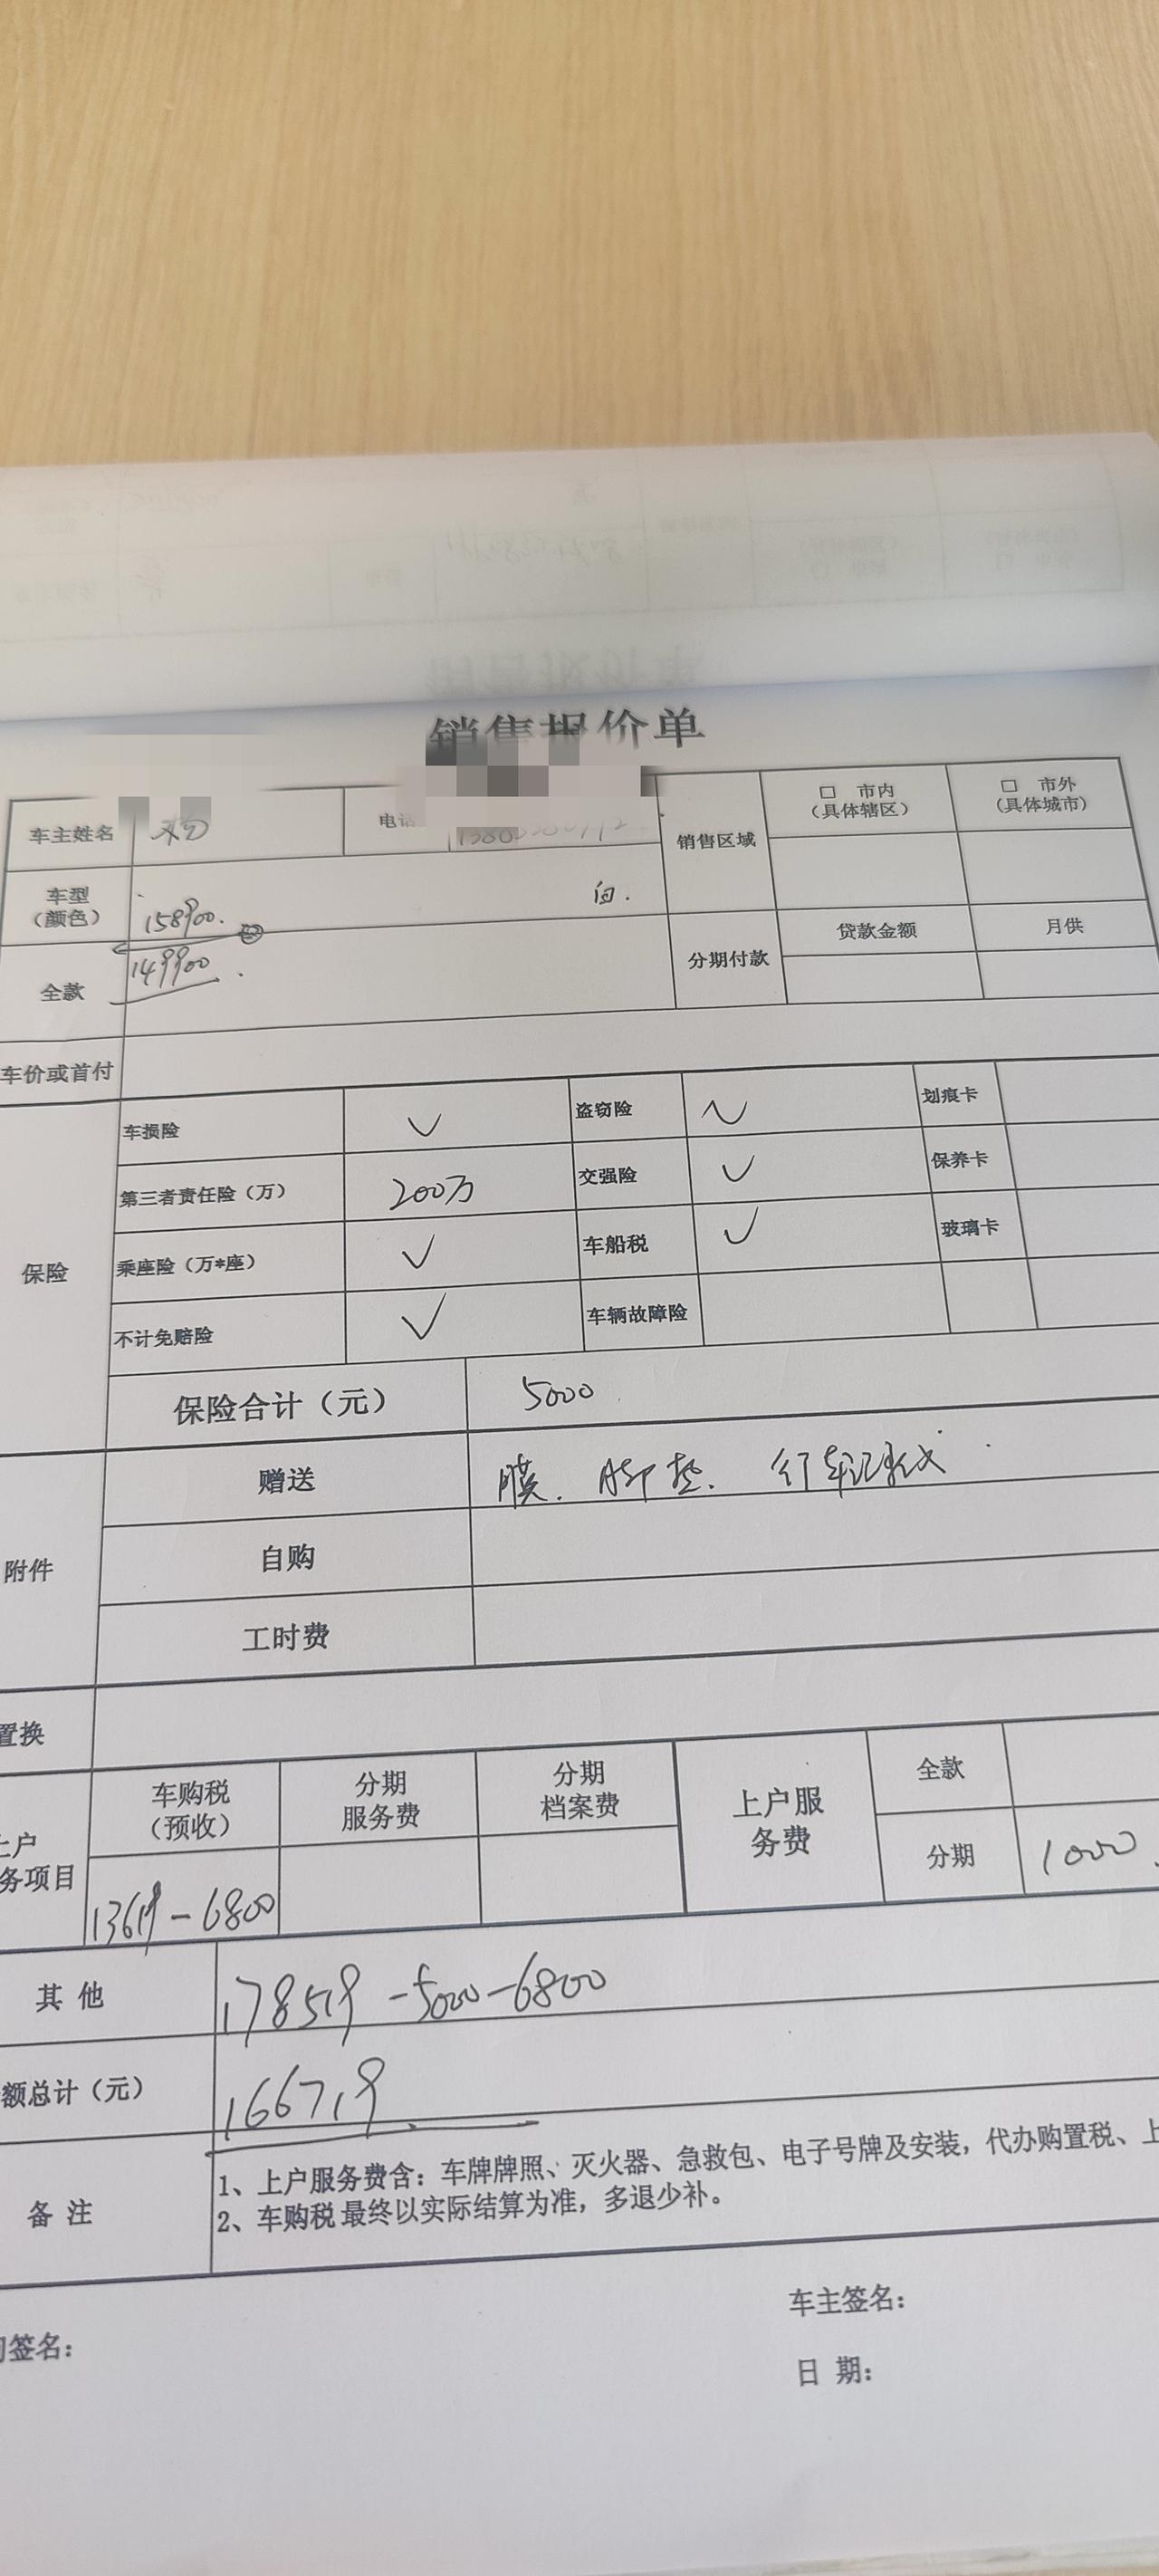 销售报价单
车主姓名 杨 电话 销售区域 □ 市内（具体辖区） □ 市外（具体城市）
车型（颜色） 158900. 白.
全款 149900. 分期付款 贷款金额 月供
车价或首付
保险
车损险 ✓ 盗窃险 ✓ 划痕卡
第三者责任险（万） 200万 交强险 ✓ 保养卡
乘座险（万*座） ✓ 车船税 ✓ 玻璃卡
不计免赔险 ✓ 车辆故障险
保险合计（元） 5000
附件
赠送 膜. 脚垫. 行车记录仪
自购
工时费
置换
上户
务项目
车购税（预收） 分期服务费 分期档案费 上户服务费 全款
13619-6800 分期 1000.
其他 178519-5000-6800
额总计（元） 166719
备注
1、上户服务费含：车牌牌照、灭火器、急救包、电子号牌及安装，代办购置税、上
2、车购税最终以实际结算为准，多退少补。
车主签名：
签名：
日 期：